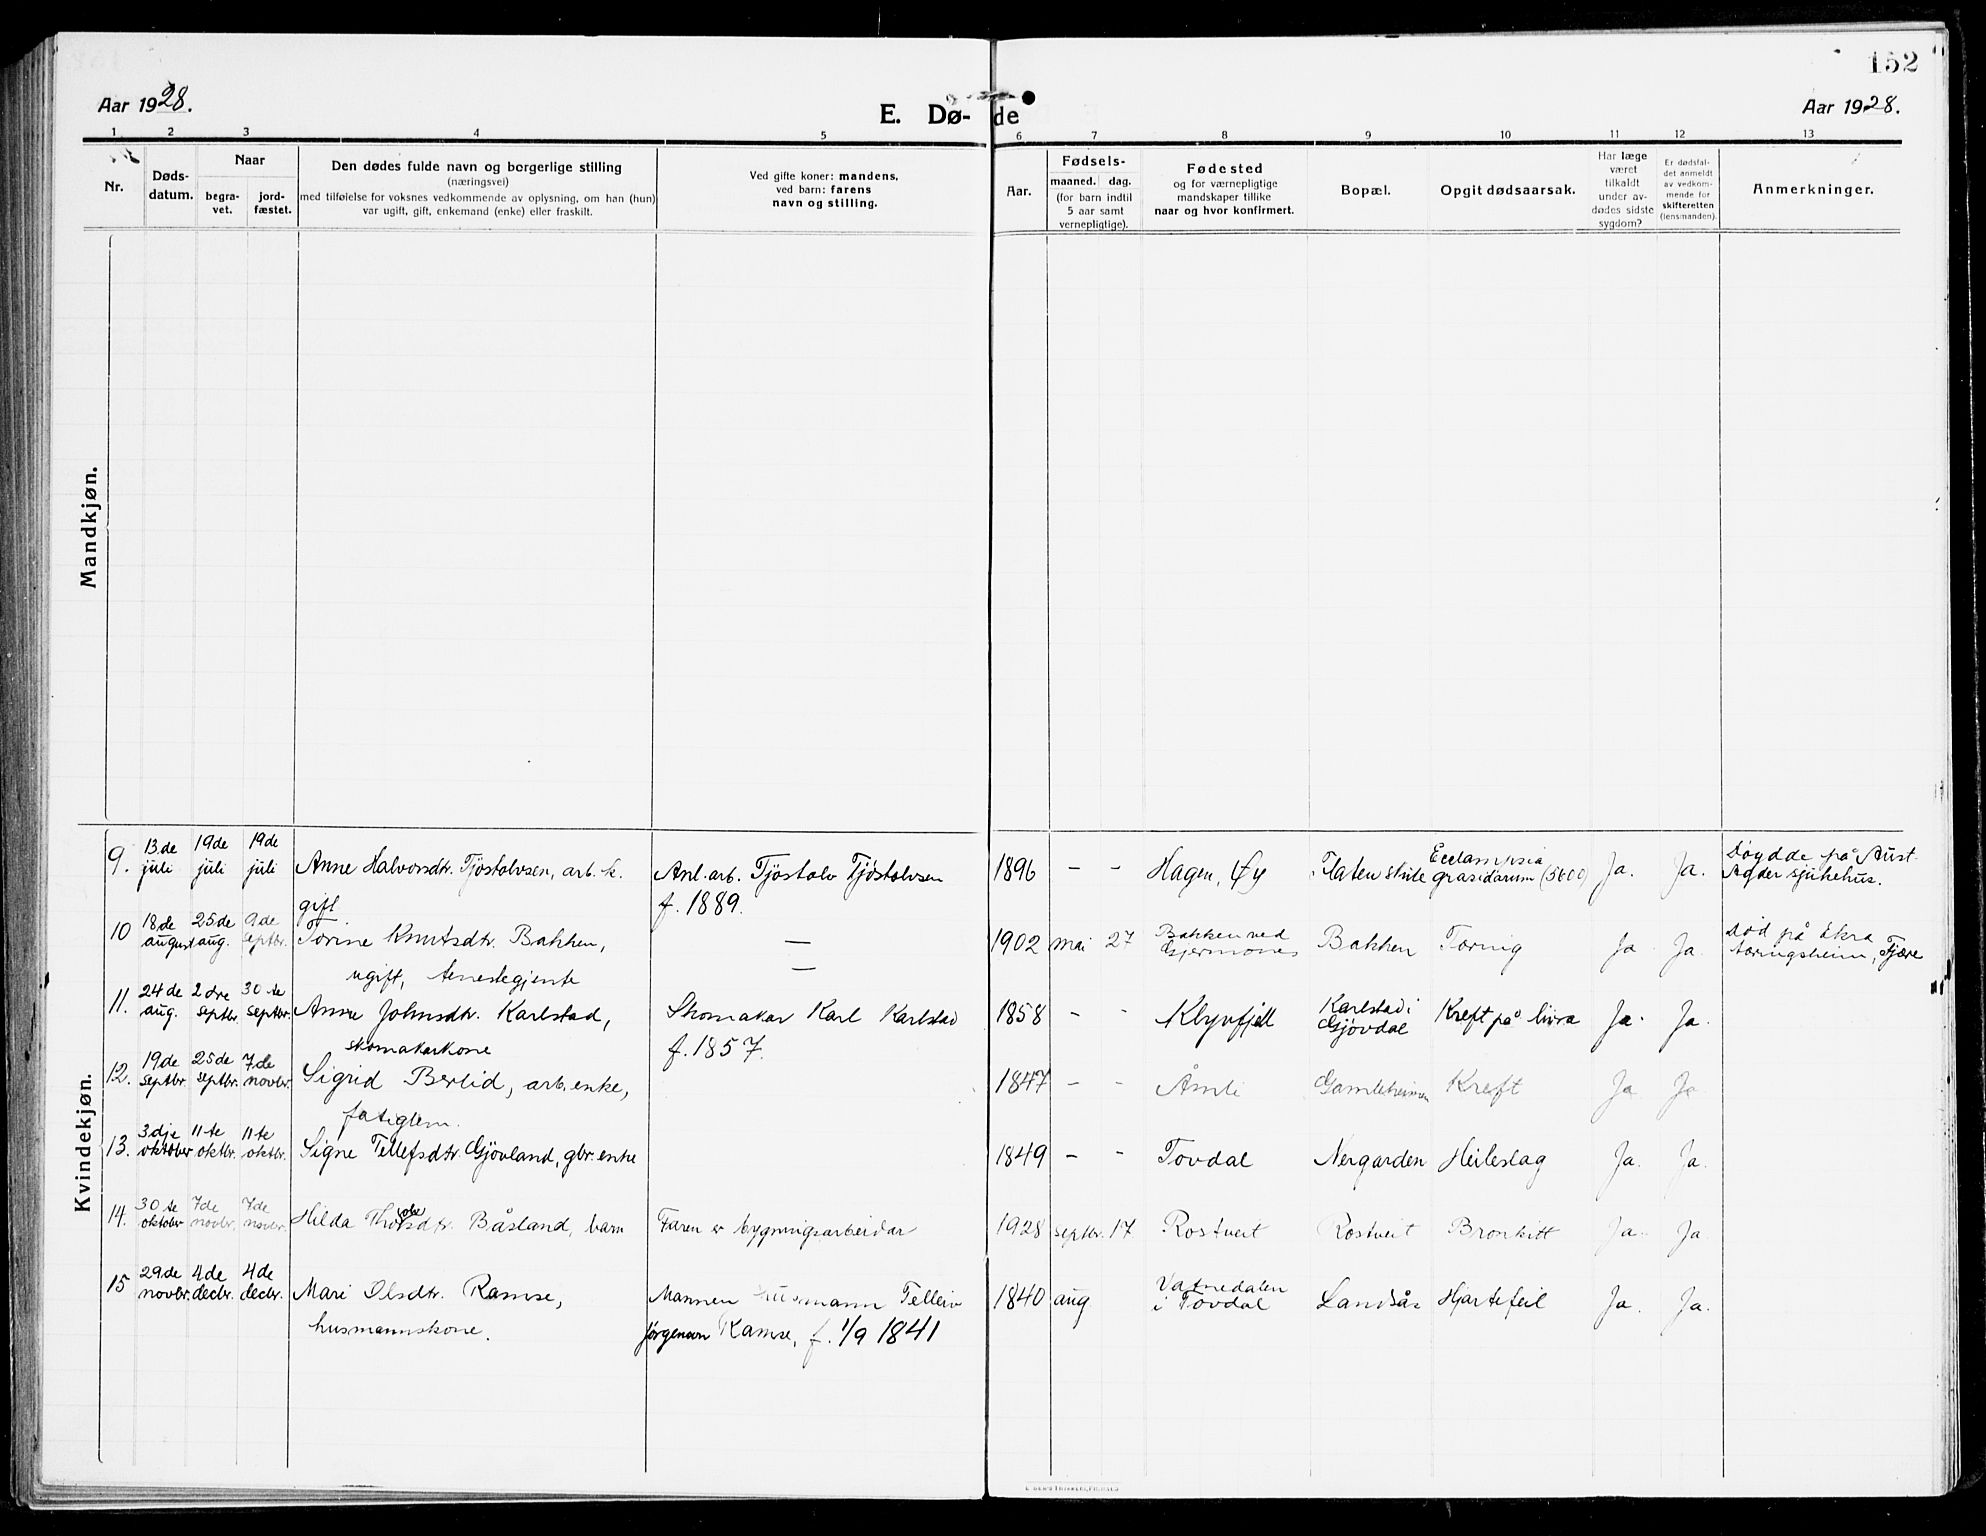 152
Aar 1928.
E. Dø- de
Aar 1928.
1 2 3 4 5 6 7 8 9 10 11 12 13
Nr.
Døds-
datum.
Naar
begra-
vet.
jord-
fæstet.
Den dødes fulde navn og borgerlige stilling
(næringsvei)
med tilføielse for voksnes vedkommende av oplysning, om han (hun)
var ugift, gift, enkemand (enke) eller fraskilt.
Ved gifte koner: mandens,
ved barn: farens
navn og stilling.
Aar.
Fødsels-
maaned. dag.
(for barn indtil
5 aar samt
vernepligtige).
Fødested
og for værnepligtige
mandskaper tillike
naar og hvor konfirmert.
Bopæl.
Opgit dødsaarsak.
Har læge
været
tilkaldt
under av-
dødes sidste
sygdom?
Er dødsfal-
det anmeldt
av vedkom-
mende for
skifteretten
(lensmanden).
Anmerkninger.
Mandkjøn.
Kvindekjøn.
9. 13.de juli 19de juli 19de juli
Anne Halvorsdtr. Tjöstolvsen, arb. k.
gift
Anl. arb. Tjöstolv Tjöstolvsen
f. 1889.
1896 - - Hagen, Øy Flaten
Ecclampsia
(5600) Ja. Ja.
Döydde på Aust-
Agder sjukehus.
10 18de august 25de aug. 9de septbr.
Torine Knutsdtr. Bakken,
ugift, tenestegjente
—
—
1902 mai 27 Bakken ved
Bakken Tæring Ja Ja.
Död på Ekra
tæringsheim, Fjære
11. 24de aug. 2dre septbr. 30te septbr.
Anne Johnsdtr. Karlstad,
skomakarkone
Skomakar Karl Karlstad
f. 1857.
1858 - - Klynfjell Karlstad i
Gjövdal Kreft på livra Ja. Ja.
12. 19de septbr. 25de septbr. 7de novbr.
Sigrid Berlid, arb. enke,
fatiglem.
1847 - - Åmli Gamleheimen Kreft Ja Ja
13. 3dje oktober 11te oktbr. 11te oktbr.
Signe Tellefsdtr. Gjövland, gbr. enke
1849 - - Tovdal Nergarden Heileslag Ja. Ja.
14. 30te oktobr 7de novbr. 7de novbr.
Hilda Båsland, barn
Faren er bygningsarbeidar
1928 septbr. 17 Rostveit Rostveit Bronkitt Ja. Ja.
15 29de novbr. 4de decbr. 4de decbr.
Mari Olsdtr. Ramse,
husmannskone.
Mannen husmann Telleiv
Jørgensen Ramse, f. 1/9 1841
1840 aug Vatnedalen
i Tovdal Landsås Hjartefeil Ja. Ja.